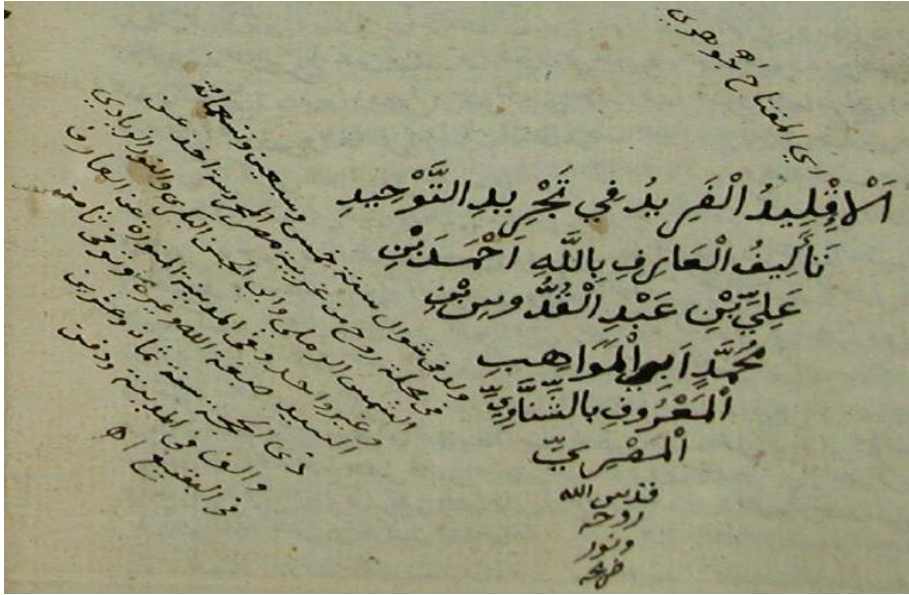 اي المفتاح جوهري
اَلْاِقْلِيدُ الْفَرِيدُ فِي تَجْرِيدِ التَّوْحِيدِ
تَأْلِيفُ الْعَارِفِ بِاللَّهِ اَحْمَدَ بْنِ
عَلِيِّ بْنِ عَبْدِ الْقُدُّوسِ بْنِ
مُحَمَّدٍ اَبِي الْمَوَاهِبِ
الْمَعْرُوفِ بِالشِّنَّاوِيِّ
الْمَصْرِيِّ
قدس الله
روحه
ونور
ولد في شوال سنة خمس وسبعين وتسعمائة
في محلة روح من غربية مصر المحروسة اخذ عن
الشمس الرملي وابي الحسن البكري والنور الزيادي
وغير واحد وفي المدينة المنورة عن العارف
السيد صبغة الله وغيره وتوفي ثامن
ذي الحجة سنة ثمان وعشرين
والف في المدينة ودفن
في البقيع اه